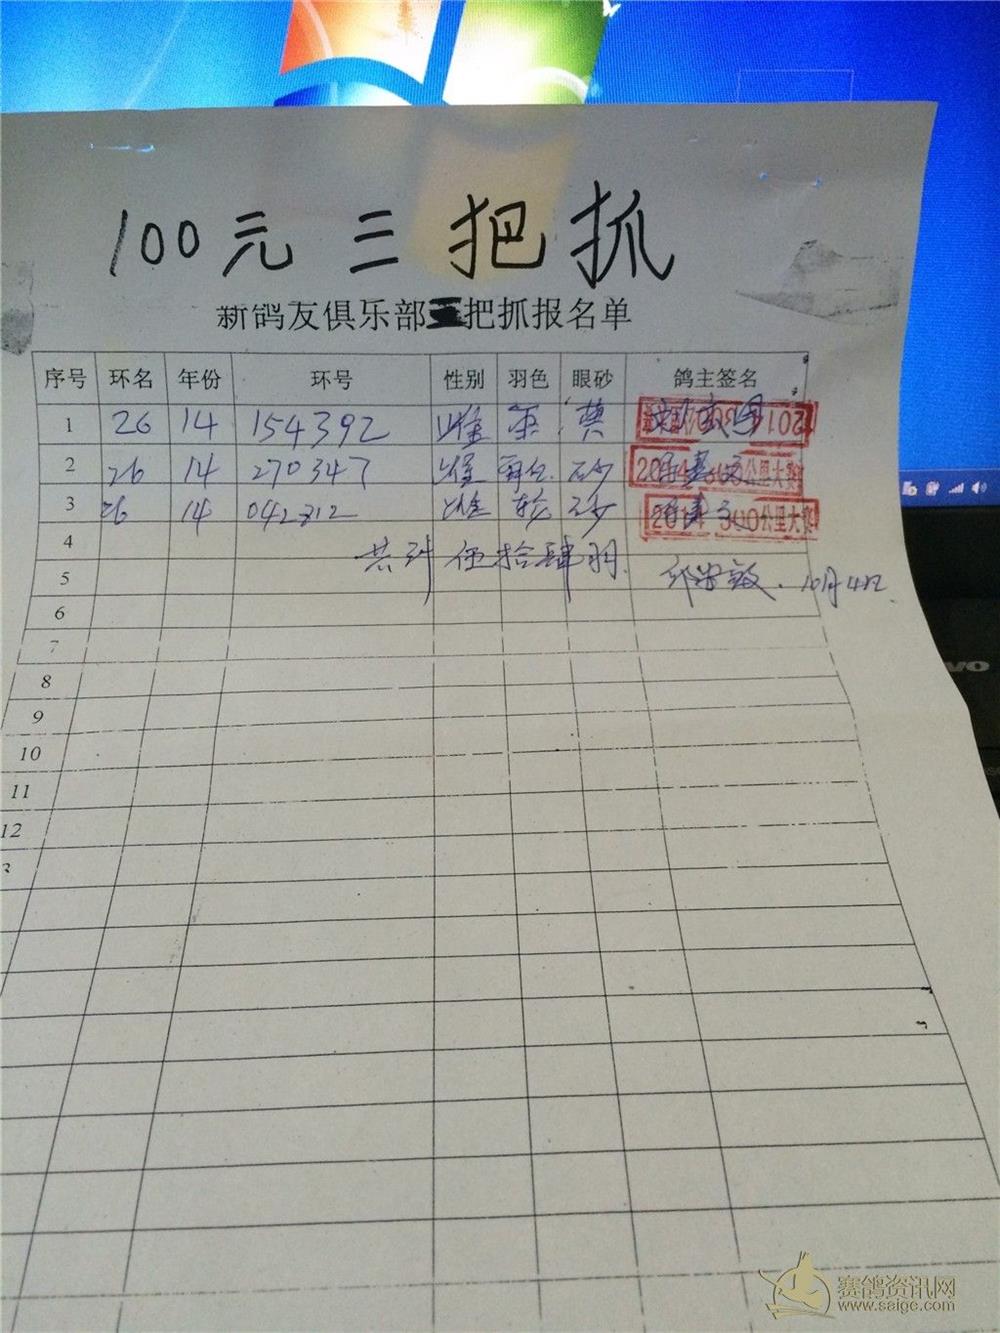 100元三把抓
新鸽友俱乐部把抓报名单
序号 环名 年份 环号 性别 羽色 眼砂 鸽主签名
1 26 14 154392 雄
2 26 14 270347 雄 砂 公里大赛
3 26 14 042312 雄 砂 2014 300公里大赛
4 共计 伍拾肆羽.
5 10月4日
6
7
8
9
10
11
12
赛鸽资讯网
www.saige.com